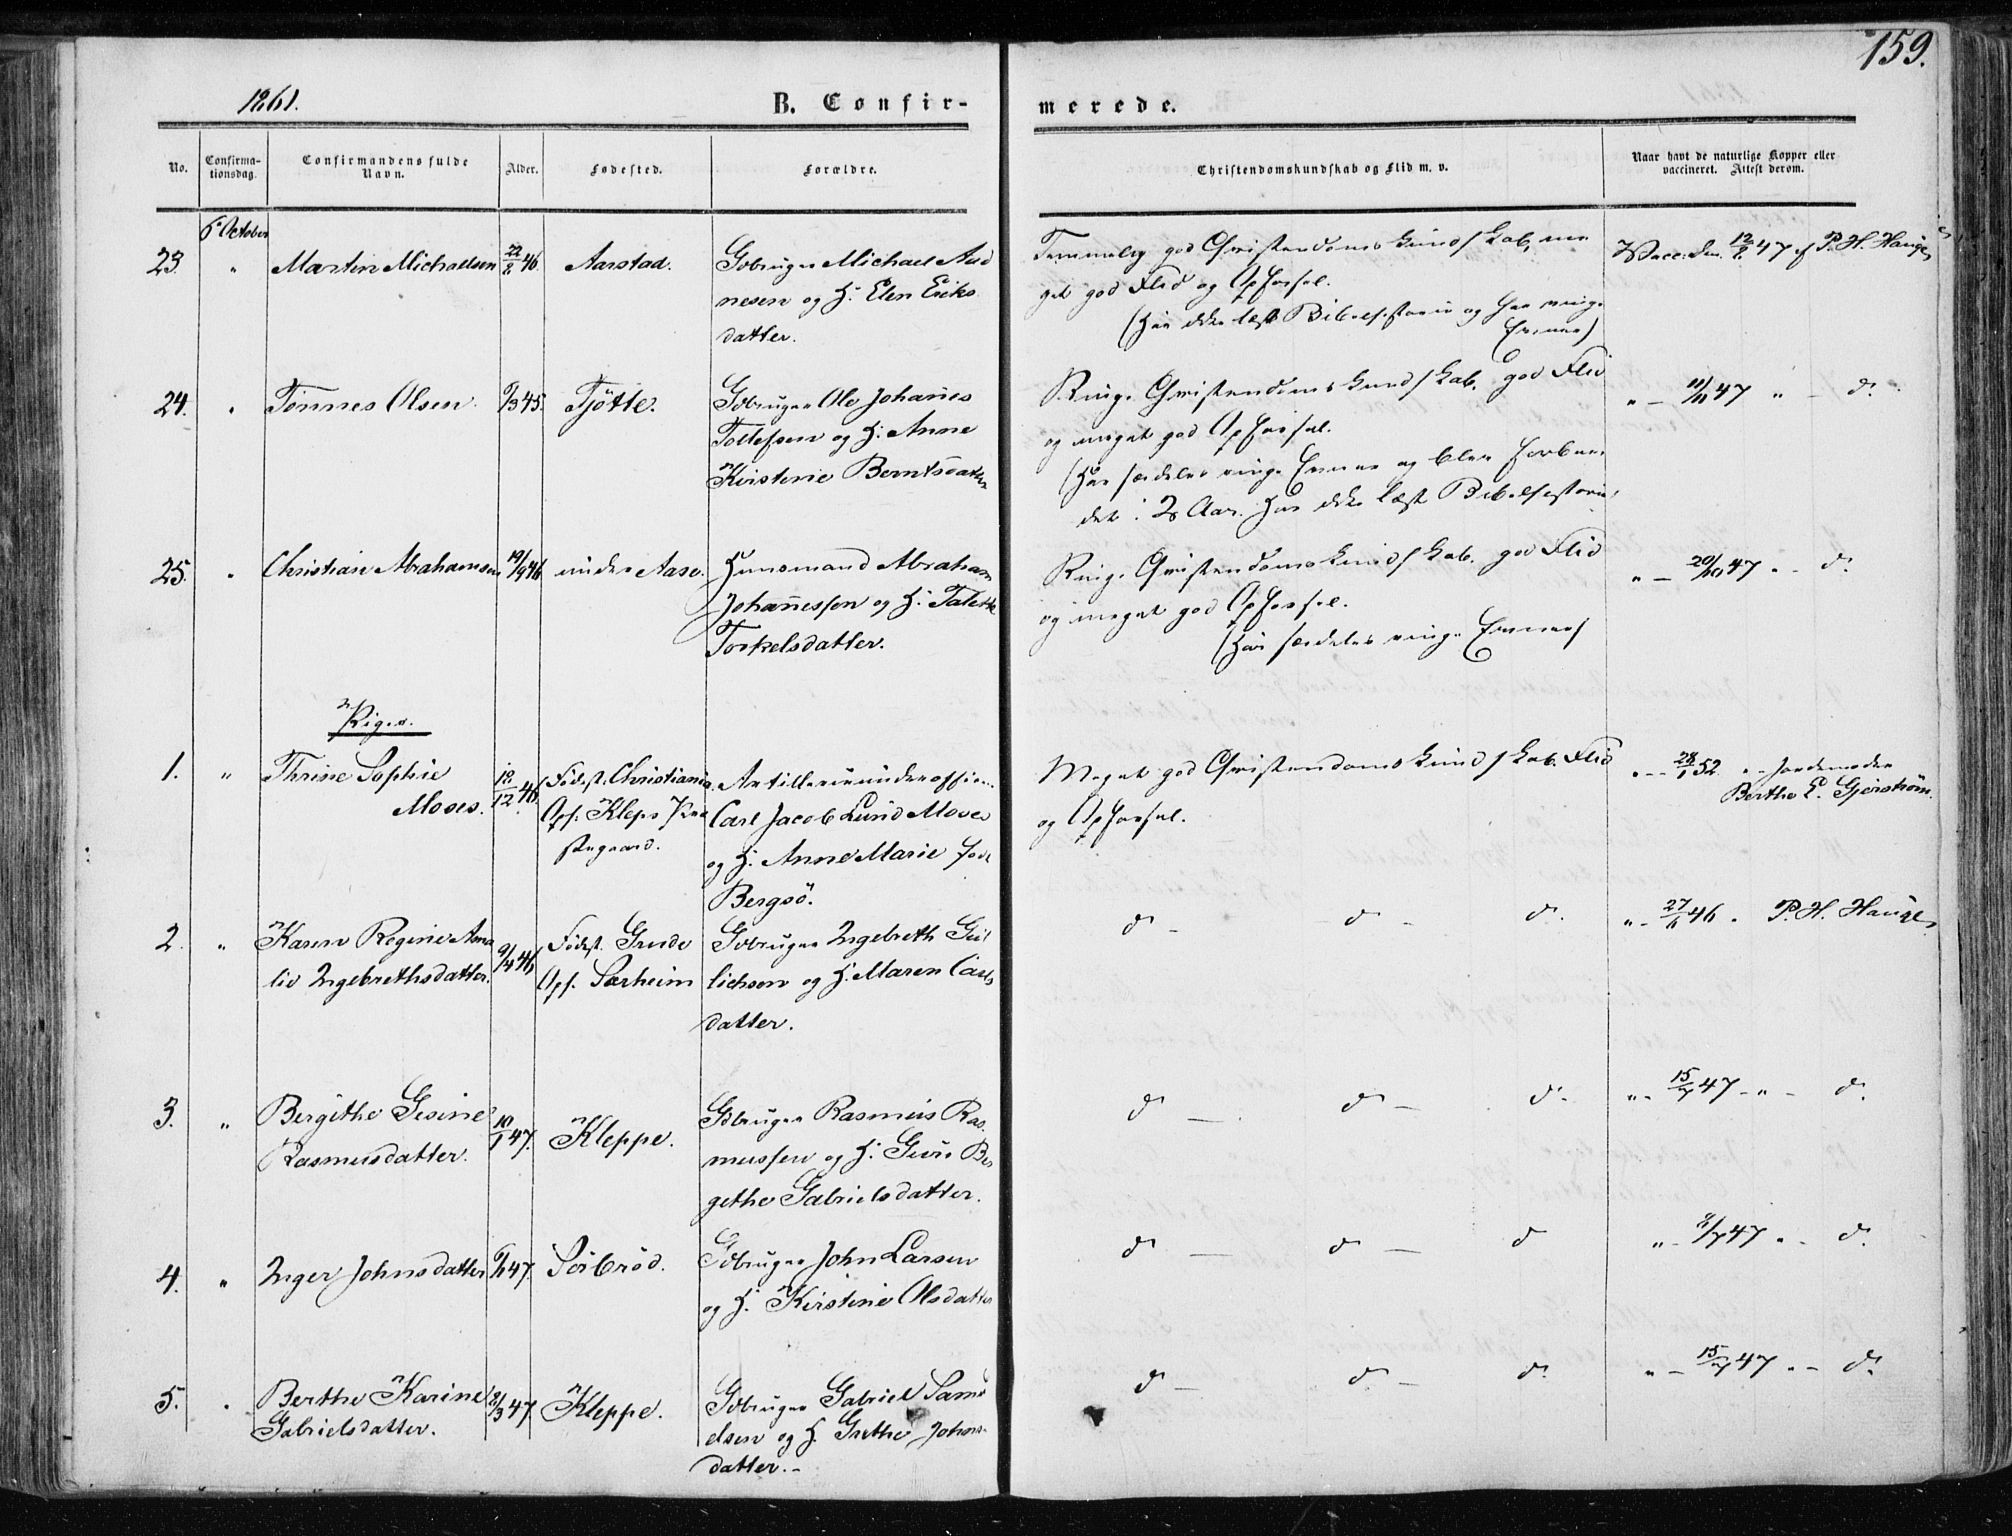 159.
1861.
B. Confir-
merede.
No.
Confirma-
tionsdag.
Confirmandens fulde
Navn.
Alder.
Fødested.
Forældre.
Christendomskundskab og Flid m. v.
Naar havt de naturlige Kopper eller
vaccineret. Attest derom.
6 October
23. " Martin Michaelsen 22/2 46. Aarstad. Gbruger Michael And
nesen og H. Elen Eriks
datter.
Temmelig god Christendomskundskab, me
get god Flid og Opførsel.
(Har ikke læst Bibelhistorie og har ringe
Evner)
Vacc. den 12/9 47 af P. H. Hauge
24. " Tønnes Olsen. 6/3 45. Tjötte. Gbruger Ole Johanes
Tollefsen og H. Anne
Kirstine Berntsdatter
Ringe Christendomskundskab. god Flid
og meget god Opførsel.
(Har særdeles ringe Evner og blev forbere
det i 2 Aar. Har ikke læst Bibelhistorie)
" - 11/11 47 " - d.
25. " Christian Abrahamsen 19/9 46 under Aase. Huusmand Abraham
Johannessen og H. Talette
Torkelsdatter.
Ringe Christendomskundskab. god Flid
og meget god Opførsel.
(Har særdeles ringe Evner)
" - 20/10 47 " - d.
Piger.
1. " Thrine Sophie
Moses. 12/12 46. Født. Christiania.
Opf. Kleps Præ
stegaard.
Artillerieunderofficer
Carl Jacob Lund Moses
og H. Anne Marie født
Bergsö.
Meget god Christendomskundskab. Flid
og Opførsel.
" - 28/1 52. " - Jordemoder
Berthe E. Gjerstrøm.
2. " Karen Regine Ama
lie Ingebrethsdatter. 9/4 46 Født. Grude
Opf. Særheim
Gbruger Ingebreth Gul
lichsen og H. Maren Carls
datter.
d - d - d. " - 27/6 46 " P. H. Hauge
3. " Bergithe Gesine
Rasmusdatter. 10/1 47. Kleppe. Gbruger Rasmus Ras
mussen og H. Guri Ber
gethe Gabrielsdatter.
d - d - d. " - 15/7 47 - " - d.
4. " Inger Johnsdatter 6/1 47. Sörbröd. Gbruger John Larsen
og H. Kirstine Olsdatter
d - d - d " - 8/7 47 " - d.
5. " Berthe Karine
Gabrielsdatter. 2/3 47. Kleppe. Gbruger Gabriel Samu
elsen og H. Grethe Johns-
datter. -
d - d. - d. " - 15/7 47 " - d.